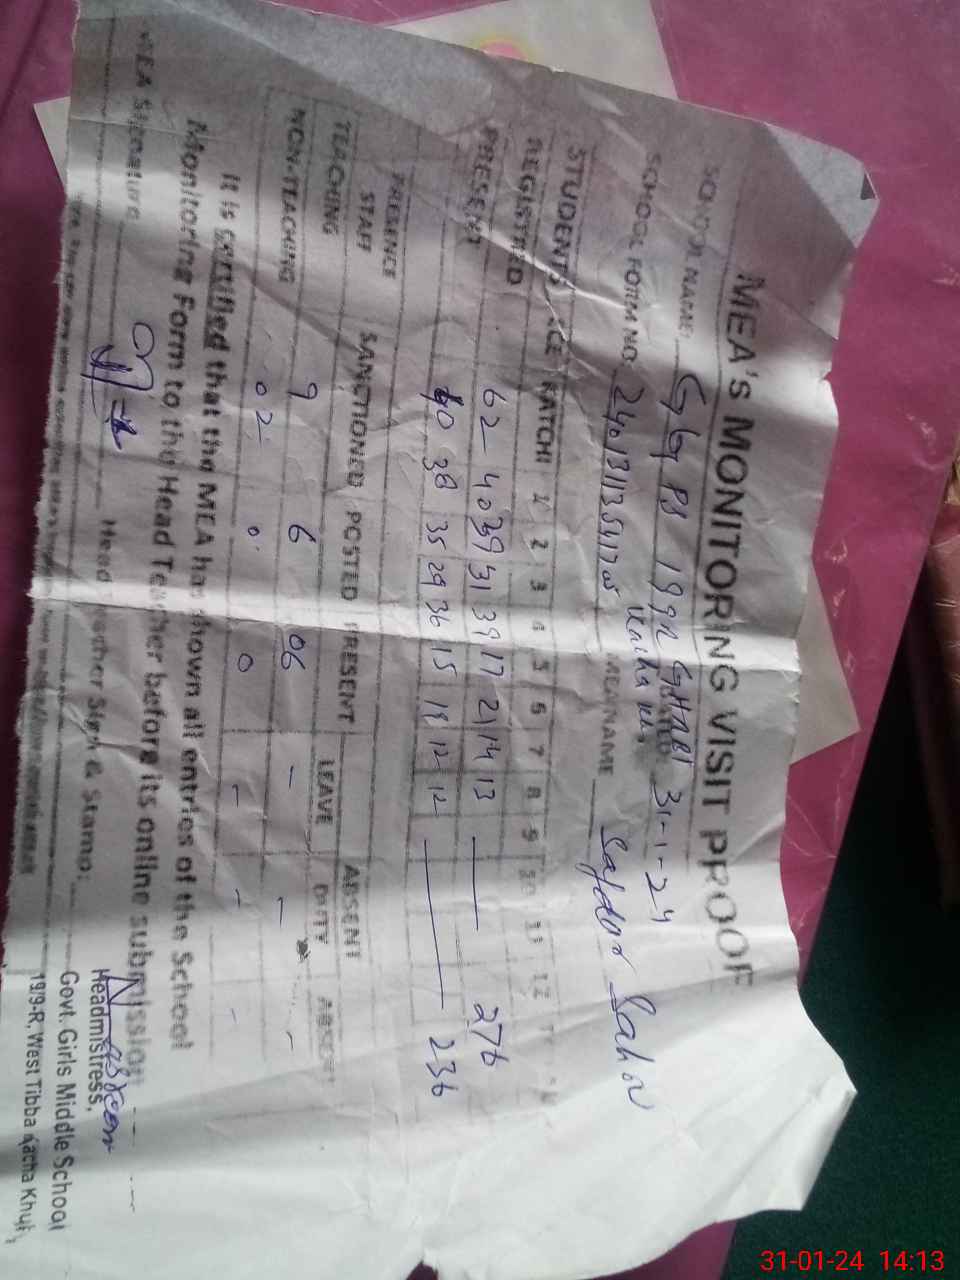 MEA'S MONITORING VISIT PROOF
SCHOOL NAME: GG PS 19/9R GHARBI DATED 31-1-24
Kacha
SCHOOL FORM NO: MEA NAME Safdar
STUDENTS ACE KATCHI 1 2 3 4 5 6 7 8 9 10 11 12
REGISTRED 62 40 39 31 39 17 21 14 13 276
PRESENT 40 38 35 29 36 15 18 12 12 236
PRESENCE
STAFF SANCTIONED POSTED PRESENT ABSENT
LEAVE DUTY ABSENT
TEACHING 9 6 06 - - -
NON-TEACHING 02 0 0 - - -
It is certified that the MEA has shown all entries of the School
Monitoring Form to the Head Teacher before its online submission
MEA Signature Head Teacher Sign & Stamp:
Headmistress,
Govt. Girls Middle School
19/9-R, West Tibba Kacha Khuh
31-01-24 14:13